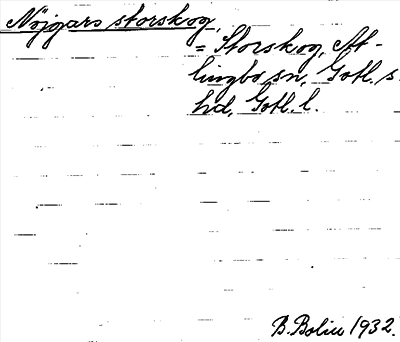 Nöjgars storskog,
= Storskog, At-
lingbo sn, Gotl. s.
hd, Gotl. l.
B. Bolin 1932.